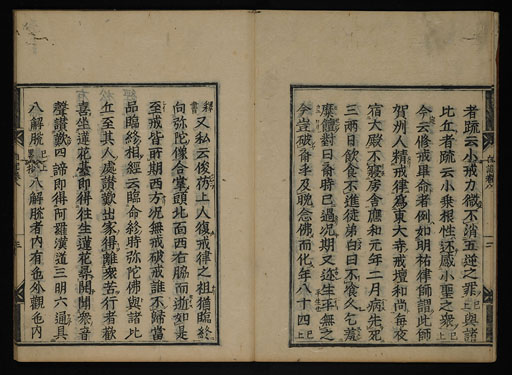 者疏云小戒力微不消五逆之罪已上與諸
比丘者疏云小乘根性还感小聖之衆已上
今云修戒畢命者例如明祐律師謂此師
賀州人精戒律為東大寺戒壇和尚每夜
宿大殿不寢房舍應和元年二月病先死
三兩日飲食不進徒弟白曰不食久乞羞
糜體對曰齋時已過况期又迩生平無之
今豈破齋乎及晚念佛而化年八十四已上
釋書又私云俊芿上人復戒律之祖猶臨終
向弥陀像合掌頭北面西右脇而逝如是
至戒皆所期西方况無戒破戒誰不歸當
品臨終相經云臨命終時弥陀佛與諸比
丘至其人處讃歎出家得離衆苦行者歡
喜坐蓮花臺即得往生蓮花尋開聞衆音
聲讃歎四諦即得阿羅漢道三明六通具
八解脱已上略抄八解脱者内有色外觀色内